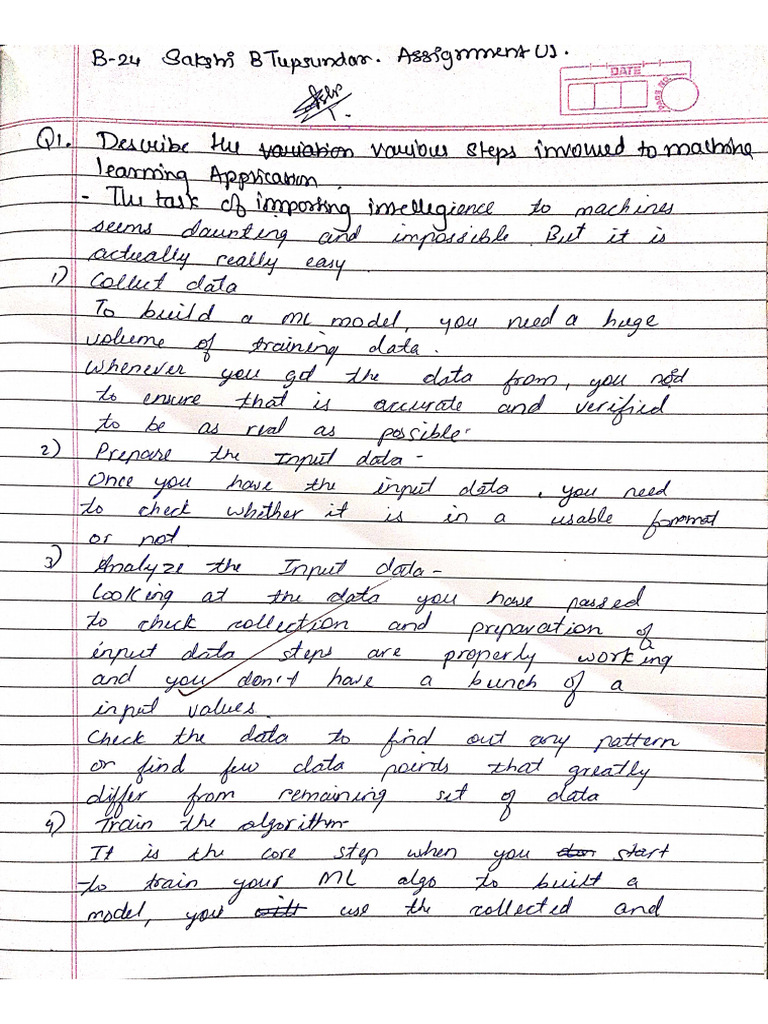 B-24 Sakshi B Tupsundar. Assignment 01.
DATE
PAGE NO.
Q1. Describe the variation various steps involved to machine
learning Application.
- The task of importing intellegience to machines
seems daunting and impossible. But it is
actually really easy.
1) Collect data
To build a ML model, you need a huge
volume of training data.
Whenever you got the data from, you need
to ensure that is accurate and verified
to be as real as possible.
2) Prepare the Input data -
Once you have the input data, you need
to check whether it is in a usable format
or not.
3) Analyze the Input data -
Looking at the data you have passed
to check collection and preparation of a
input data steps are properly working
and you don't have a bunch of a
input values.
Check the data to find out any pattern
or find few data points that greatly
differ from remaining set of data
4) Train the algorithm
It is the core step when you start
to train your ML algo to built a
model, you will use the collected and